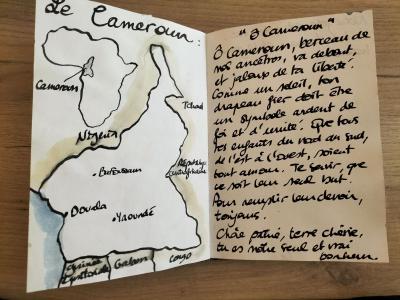 Le Cameroun :
Cameroun
Tchad
Nigeria
Bafoussam
République
centrafricaine
Douala
Yaoundé
Guinée
Equatoriale
Gabon
Congo
" Ô Cameroun "
Ô Cameroun, berceau de
nos ancêtres, va debout,
et jaloux de ta liberté.
Comme un soleil, ton
drapeau fier doit être
un symbole ardent de
foi et d'unité. Que tous
tes enfants du Nord au Sud,
de l'est à l'ouest, soient
tout amour. Te servir, que
ce soit leur seul but.
Pour remplir leur devoir,
toujours.
Chère patrie, terre chérie,
tu es notre seul et vrai
bonheur.